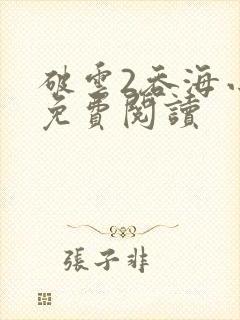 破雲2吞海小
免費閱讀
張子非